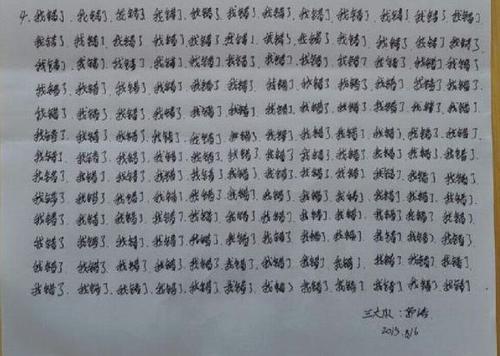 4. 我错了、我错了、我错了、我错了、我错了、我错了、我错了、我错了、我错了、我错了、我错了、我错了、
我错了、我错了、我错了、我错了、我错了、我错了、我错了、我错了、我错了、我错了、我错了、我错了、
我错了、我错了、我错了、我错了、我错了、我错了、我错了、我错了、我错了、我错了、我错了、我错了、
我错了、我错了、我错了、我错了、我错了、我错了、我错了、我错了、我错了、我错了、我错了、我错了、
我错了、我错了、我错了、我错了、我错了、我错了、我错了、我错了、我错了、我错了、我错了、我错了、
我错了、我错了、我错了、我错了、我错了、我错了、我错了、我错了、我错了、我错了、我错了、我错了、
我错了、我错了、我错了、我错了、我错了、我错了、我错了、我错了、我错了、我错了、我错了、我错了、
我错了、我错了、我错了、我错了、我错了、我错了、我错了、我错了、我错了、我错了、我错了、我错了、
我错了、我错了、我错了、我错了、我错了、我错了、我错了、我错了、我错了、我错了、我错了、我错了、
我错了、我错了、我错了、我错了、我错了、我错了、我错了、我错了、我错了、我错了、我错了、我错了、
我错了、我错了、我错了、我错了、我错了、我错了、我错了、我错了、我错了、我错了、我错了、我错了、
我错了、我错了、我错了、我错了、我错了、我错了、我错了、我错了、我错了、我错了、我错了、我错了、
我错了、我错了、我错了、我错了、我错了、我错了、我错了、我错了、我错了、我错了、我错了、我错了
三大队：